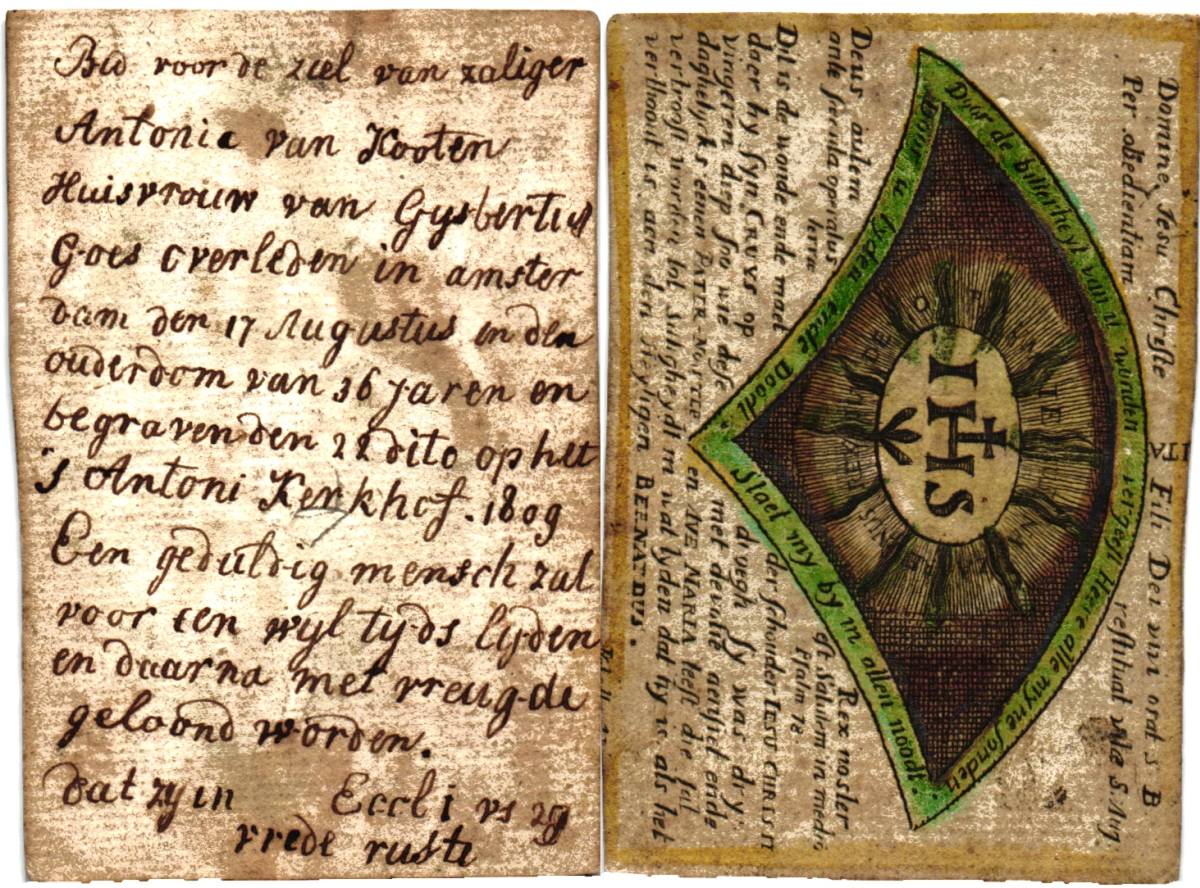 Bid voor de ziel van zaliger
Antonia van Kooten
Huisvrouw van Gysbertus
Goes overleden in amster
dam den 17 Augustus in den
ouderdom van 36 Jaren en
begraven den 22 dito op het
's Antoni Kerkhof. 1809
Een geduldig mensch zal
voor een wyl tyds lyden
en daarna met vreugde
geloond worden.
dat zy in Eccli i vs 29
vrede ruste
Domine Jesu Christe Fili Dei
Per obedientiam
Door de bitterheyt van u wonden vergeeft Heere alle myne sonden
Staet my by in allen noodt
u lyden ende Doodt
IHS
Deus autem Rex noster
ante saecula operatus est Salutem in medio
terre Psalm
Dit is de wonde ende mael der schouder Iesu Christi
daer hy syn Cruys op droegh sy was dry
vingeren diep soo wie dese met devotie aensiet ende
daghelyks eenen PATER-NOSTER en AVE MARIA leest die sal
vertroost worden
verthoont is aen den Heyligen BEENADUS.